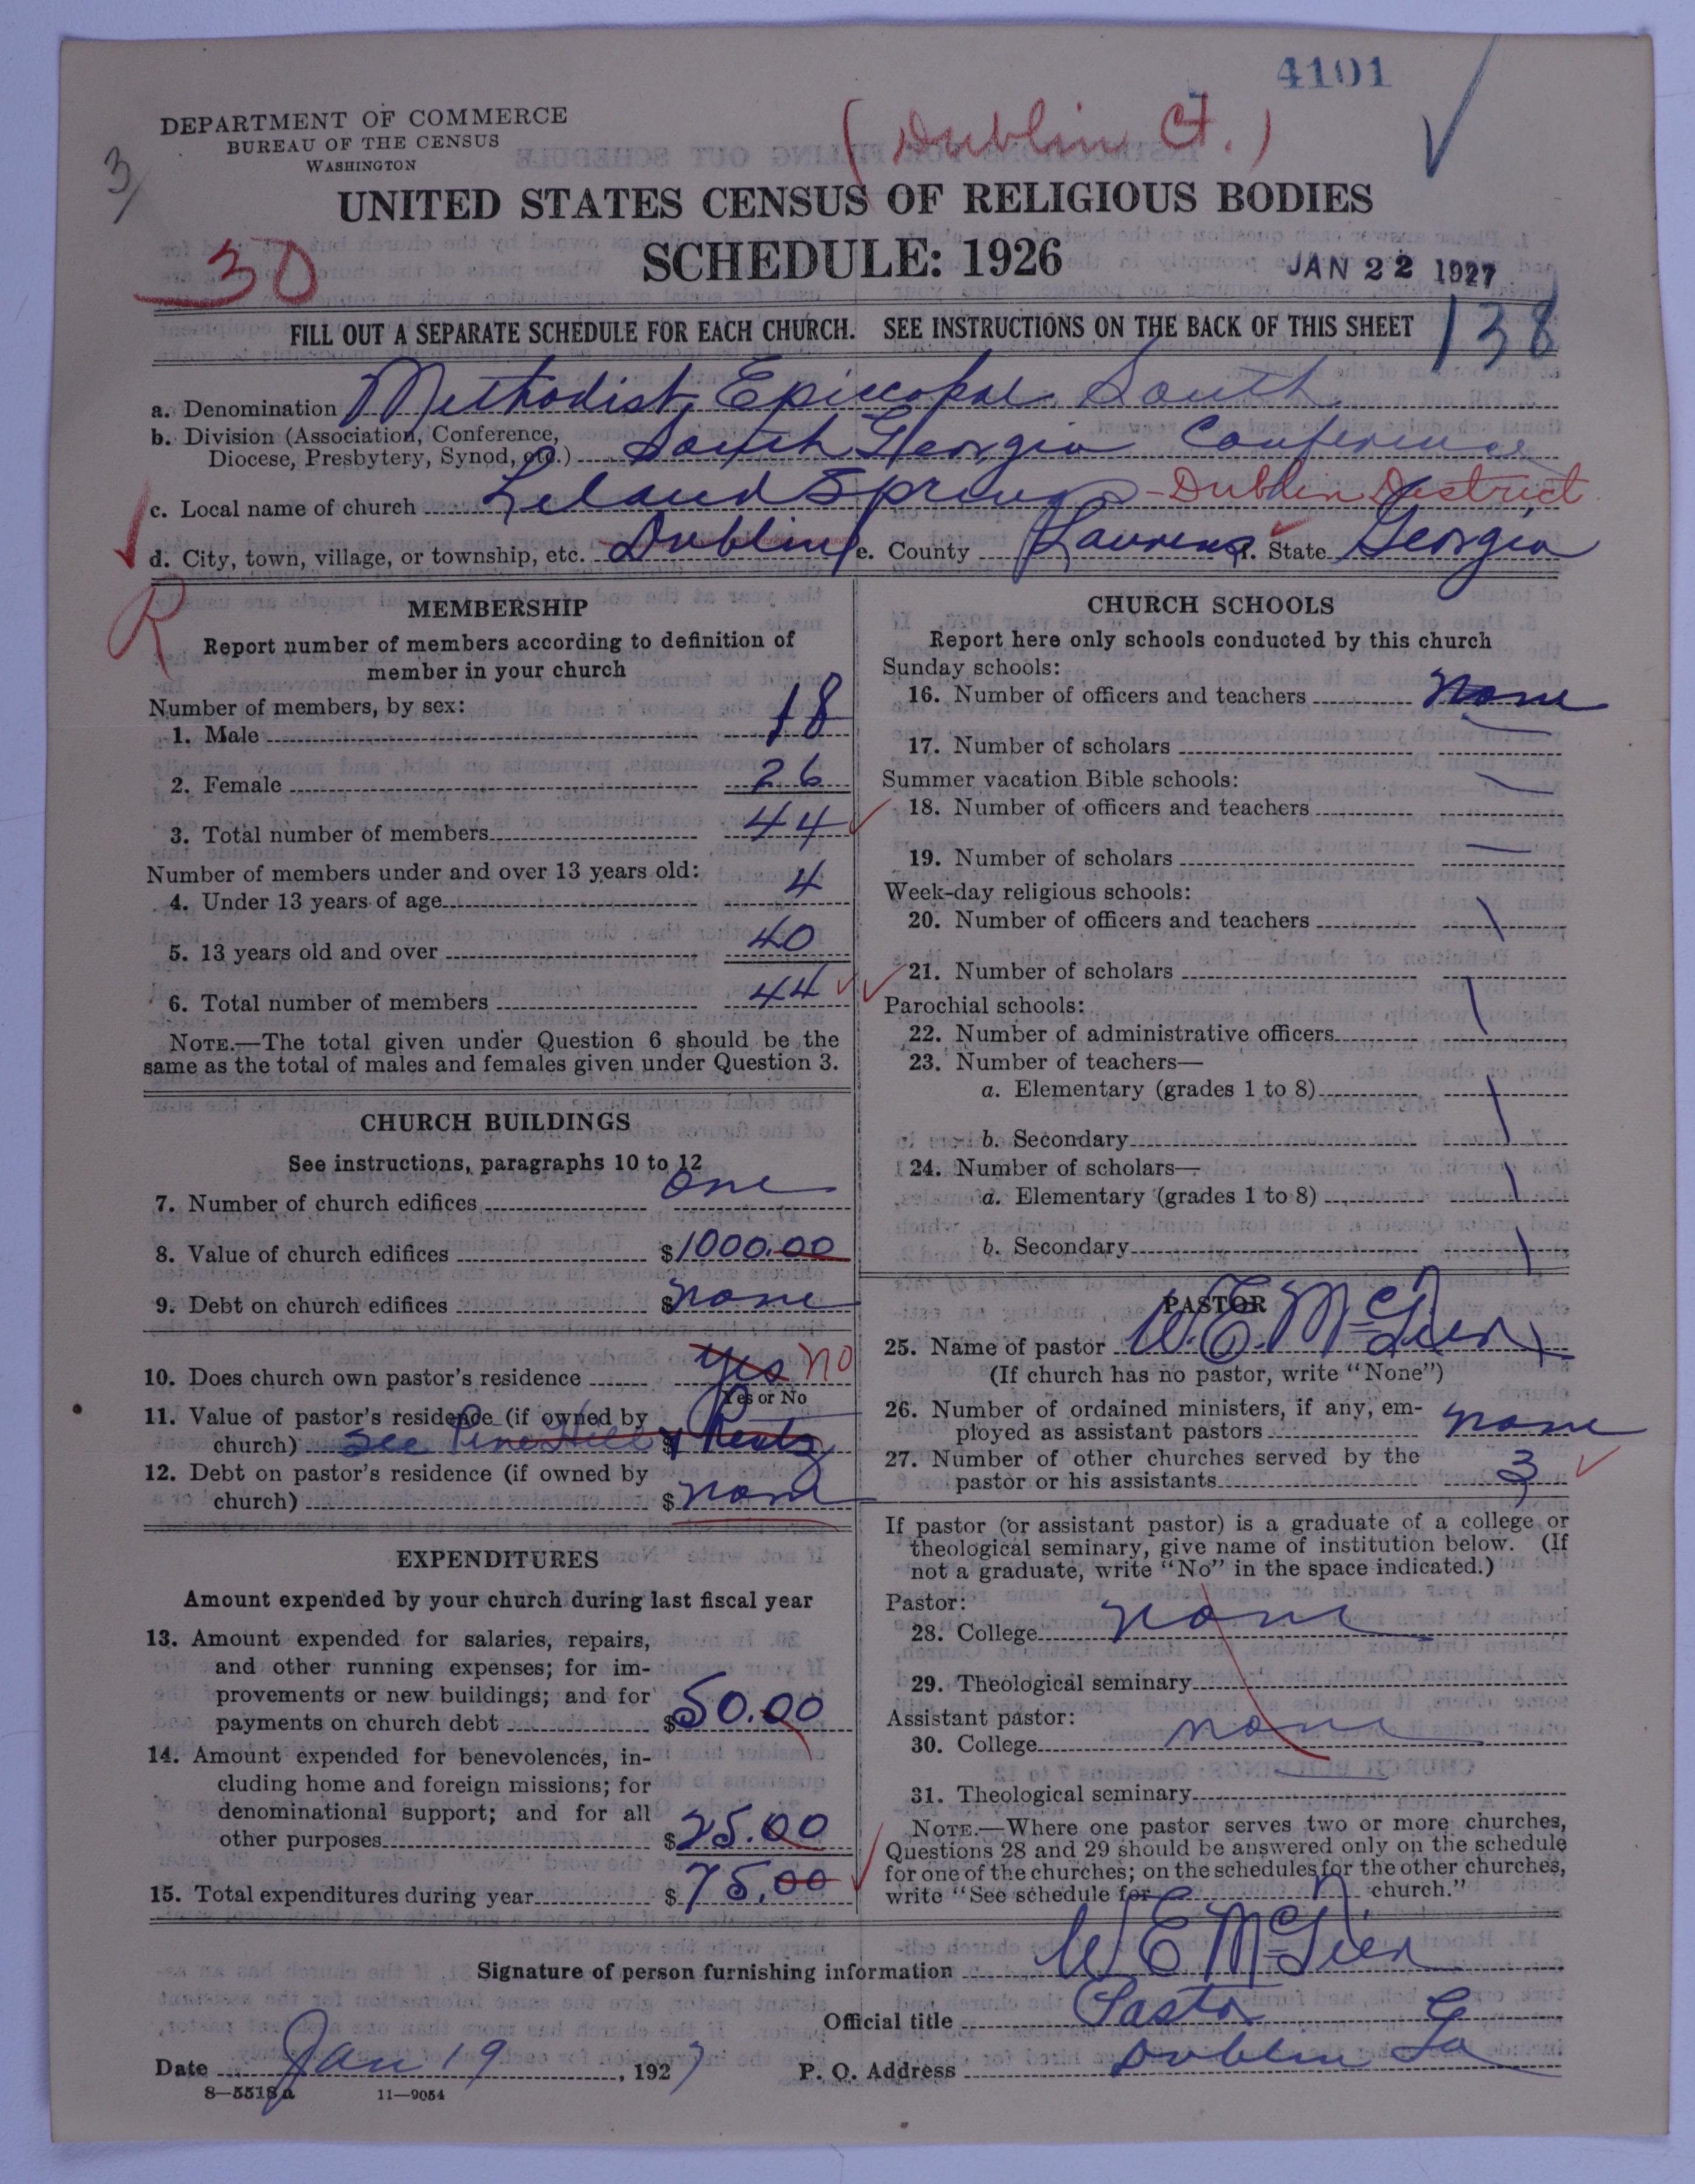 4101
DEPARTMENT OF COMMERCE
BUREAU OF THE CENSUS
WASHINGTON
(Dublin Ct.)
3/
UNITED STATES CENSUS OF RELIGIOUS BODIES
SCHEDULE: 1926
30
JAN 22 1927
138
FILL OUT A SEPARATE SCHEDULE FOR EACH CHURCH. SEE INSTRUCTIONS ON THE BACK OF THIS SHEET
a. Denomination Methodist Episcopal South
b. Division (Association, Conference,
Diocese, Presbytery, Synod, etc.) South Georgia Conference
c. Local name of church Springs - Dublin District
d. City, town, village, or township, etc. Dublin e. County Laurens f. State Georgia
R
MEMBERSHIP
Report number of members according to definition of
member in your church
Number of members, by sex:
1. Male 18
2. Female 26
3. Total number of members 44
Number of members under and over 13 years old:
4. Under 13 years of age 4
5. 13 years old and over 40
6. Total number of members 44
NOTE.—The total given under Question 6 should be the
same as the total of males and females given under Question 3.
CHURCH BUILDINGS
See instructions, paragraphs 10 to 12
7. Number of church edifices one
8. Value of church edifices $1000.00
9. Debt on church edifices $none
10. Does church own pastor's residence yes no
Yes or No
11. Value of pastor's residence (if owned by
church) See Pine Hill $
12. Debt on pastor's residence (if owned by
church) $none
EXPENDITURES
Amount expended by your church during last fiscal year
13. Amount expended for salaries, repairs,
and other running expenses; for im-
provements or new buildings; and for
payments on church debt $50.00
14. Amount expended for benevolences, in-
cluding home and foreign missions; for
denominational support; and for all
other purposes $25.00
15. Total expenditures during year $75.00
CHURCH SCHOOLS
Report here only schools conducted by this church
Sunday schools:
16. Number of officers and teachers none
17. Number of scholars
Summer vacation Bible schools:
18. Number of officers and teachers
19. Number of scholars
Week-day religious schools:
20. Number of officers and teachers
21. Number of scholars
Parochial schools:
22. Number of administrative officers
23. Number of teachers—
a. Elementary (grades 1 to 8)
b. Secondary
24. Number of scholars—
a. Elementary (grades 1 to 8)
b. Secondary
PASTOR
25. Name of pastor W. E.
(If church has no pastor, write "None")
26. Number of ordained ministers, if any, em-
ployed as assistant pastors none
27. Number of other churches served by the
pastor or his assistants 3
If pastor (or assistant pastor) is a graduate of a college or
theological seminary, give name of institution below. (If
not a graduate, write "No" in the space indicated.)
Pastor:
28. College none
29. Theological seminary
Assistant pastor:
30. College none
31. Theological seminary
NOTE.—Where one pastor serves two or more churches,
Questions 28 and 29 should be answered only on the schedule
for one of the churches; on the schedules for the other churches,
write "See schedule for church."
Signature of person furnishing information W E
Official title Pastor
Date Jan 19, 1927 P. O. Address Dublin Ga
8—5518a 11—9054